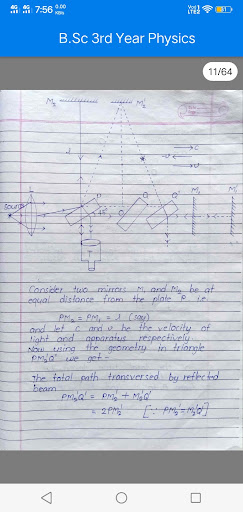 7:56
0.00
KB/s
B.Sc 3rd Year Physics
11/64
M₂
M₂'
d
c
v
v
Source
L
P
45°
Q
Q'
M₁
M₁'
T
Consider two mirrors M₁ and M₂ be at
equal distance from the plate P i.e.
PM₂ = PM₁ = d (say)
and let c and v be the velocity of
light and apparatus respectively.
Now using the geometry in triangle
PM₂'Q' we get -
The total path transversed by reflected
beam
PM₂'Q' = PM₂' + M₂'Q'
= 2PM₂' [∵ PM₂' = M₂'Q']